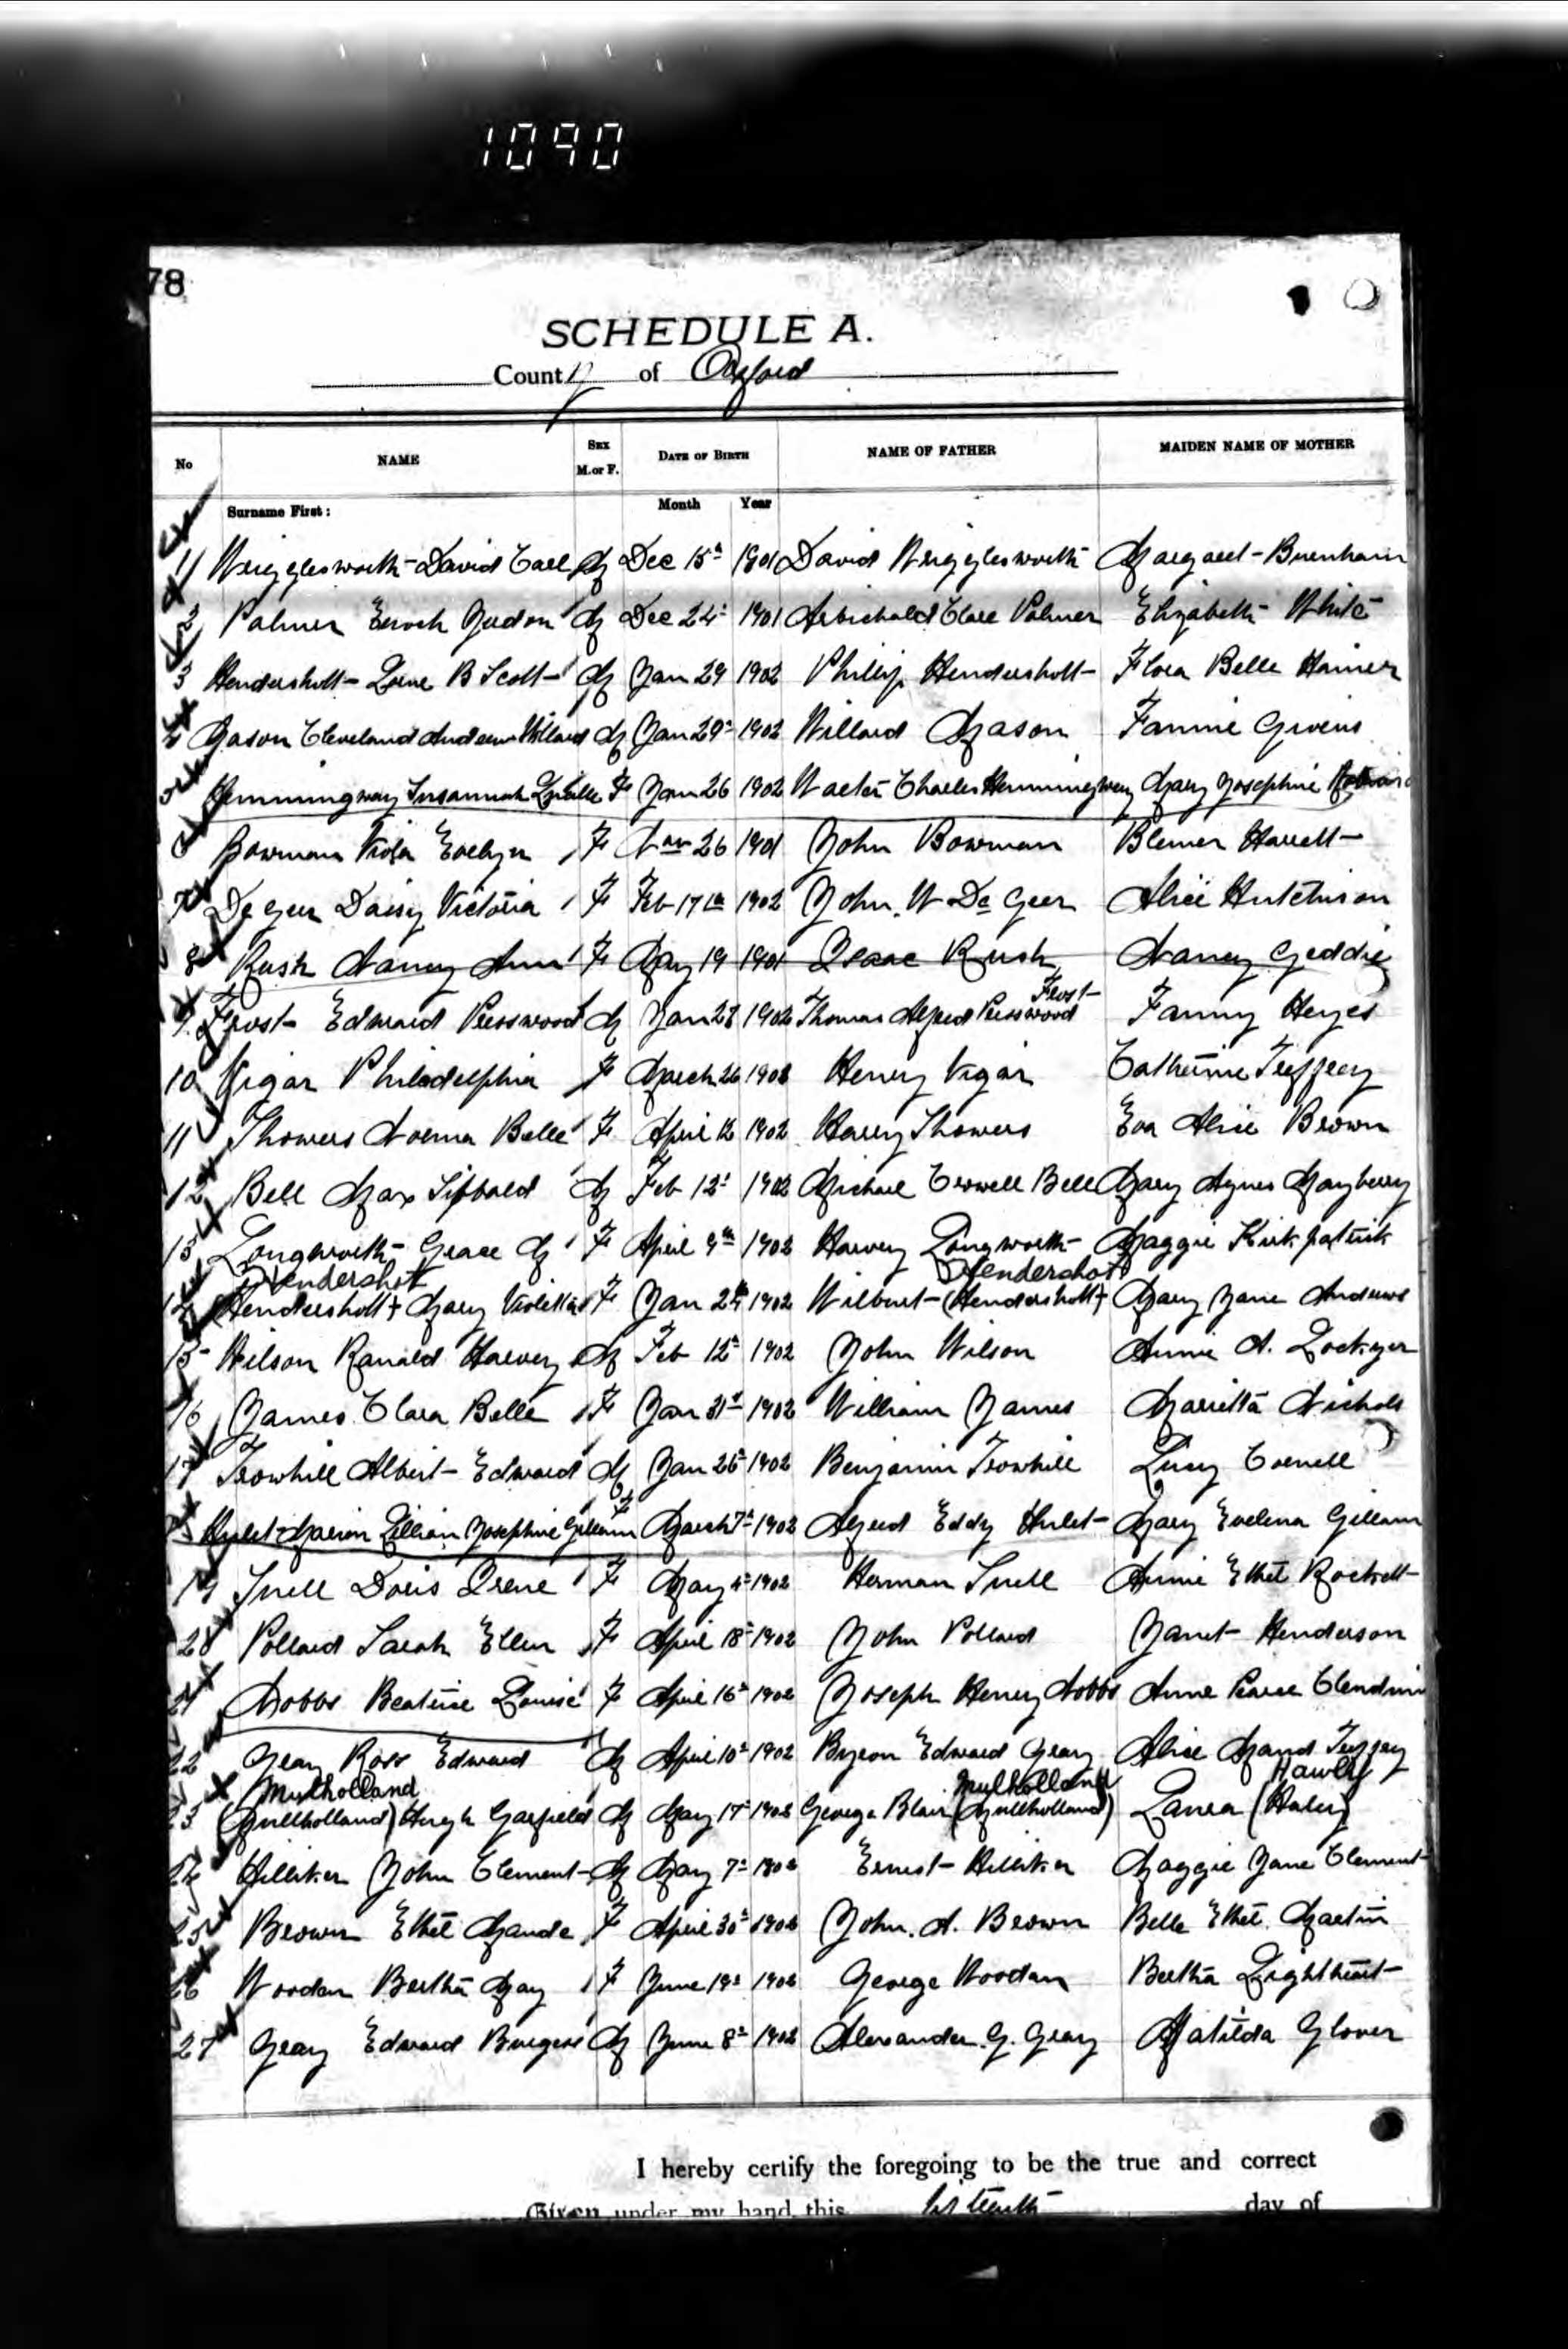 1090
78
SCHEDULE A.
County of Oxford
No NAME SEX M. or F. DATE OF BIRTH NAME OF FATHER MAIDEN NAME OF MOTHER
Surname First: Month Year
1 Wrigglesworth David Carl M Dec 15th 1901 David Wrigglesworth Margaret Burnham
2 Palmer Enoch Judson M Dec 24th 1901 Archibald Clare Palmer Elizabeth White
3 Hendershott Lorne B Scott M Jan 29 1902 Phillip Hendershott Flora Belle Hainer
4 Mason Cleveland Andrew Willard M Jan 29th 1902 Willard Mason Fannie Givens
5 Hemmingway Susannah F Jan 26 1902 Walter Charles Hemmingway Mary Josephine
6 Bowman Viola Evelyn F Nov 26 1901 John Bowman Harrett
7 De Geer Daisy Victoria F Feb 17th 1902 John W De Geer Alice Hutchison
8 Rush Nancy Ann F May 19 1901 Isaac Rush Nancy Geddie
Frost
9 Frost Edward Presswood M Jan 28 1902 Thomas Alfred Presswood Fanny Heyes
10 Vigar Philadelphia F March 26 1902 Henry Vigar Catherine Treffrey
11 Showers Norma Belle F April 12 1902 Harry Showers Eva Alice Brown
12 Bell Max Sibbald M Feb 12th 1902 Michael Crowell Bell Mary Agnes Mayberry
13 Longworth Grace M F April 9th 1902 Harvey Longworth Maggie Kirkpatrick
Hendershot Hendershot
14 (Hendershott) Mary Violetta F Jan 24 1902 Wilburt (Hendershott) Mary Jane Andrews
15 Wilson Ranald Harvey M Feb 12th 1902 John Wilson Annie A. Lockyer
16 James Clara Belle F Jan 31st 1902 William James Marietta Nichols
17 Trowhill Albert Edward M Jan 25th 1902 Benjamin Trowhill Lucy Cornell
18 Hulet Marion Lillian Josephine Gillam F March 7th 1902 Alfred Eddy Hulet Mary Evelina Gillam
19 Snell Doris Irene F May 4th 1902 Herman Snell Annie Ethel Rockett
20 Pollard Sarah Ellen F April 18th 1902 John Pollard Janet Henderson
21 Nobbs Beatrice Louise F April 16th 1902 Joseph Henry Nobbs Anne Pearce
22 Geary Ross Edward M April 10th 1902 Byron Edward Geary Alice Maud Treffrey
Mulholland Mulholland Hawley
23 (Mullholland) Hugh Garfield M May 17th 1902 George Blair (Mullholland) Laura (Haley)
24 Hilliker John Clement M May 7th 1902 Ernest Hilliker Maggie Jane Clement
25 Brown Ethel Maude F April 30th 1902 John. A. Brown Belle Ethel Martin
26 Woodan Bertha May F June 19th 1902 George Woodan Bertha Lightheart
27 Geary Edward Burgess M June 8th 1902 Alexander G. Geary Matilda Glover
I hereby certify the foregoing to be the true and correct
Given under my hand this day of